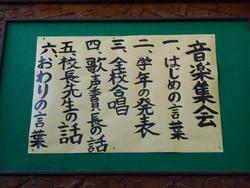 音楽集会
一、はじめの言葉
二、学年の発表
三、全校合唱
四、歌声委員長の話
五、校長先生の話
六、おわりの言葉